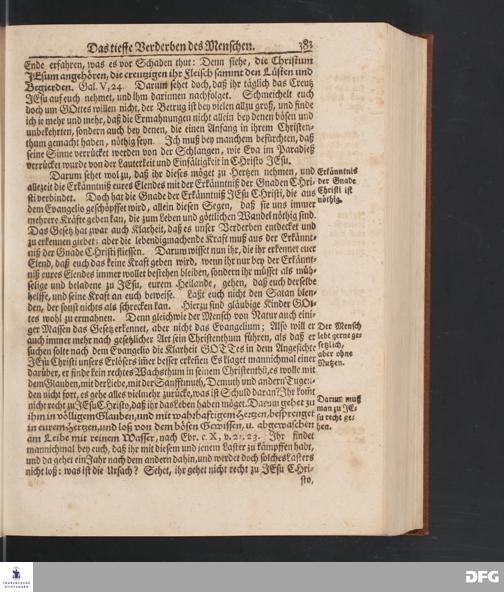 Das tieffe Verderben des Menschen. 383
Ende erfahren, was es vor Schaden thut: Denn siehe, die Christum
JEsum angehören, die creutzigen ihr Fleisch sammt den Lüsten und
Begierden. Gal. V, 24. Darum sehet doch, daß ihr täglich das Creutz
JEsu auf euch nehmet, und ihm darinnen nachfolget. Schmeichelt euch
doch um GOttes willen nicht, der Betrug ist bey vielen allzu groß, und finde
ich je mehr und mehr, daß die Ermahnungen nicht allein bey denen bösen und
unbekehrten, sondern auch bey denen, die einen Anfang in ihrem Christen-
thum gemacht haben, nöthig seyn. Ich muß bey manchem befürchten, daß
seine Sinne verrücket werden von der Schlangen, wie Eva im Paradieß
verrücket wurde von der Lauterkeit und Einfältigkeit in Christo JEsu.
Darum sehet wol zu, daß ihr dieses möget zu Hertzen nehmen, und
allezeit die Erkänntniß eures Elendes mit der Erkänntniß der Gnaden CHri-
sti verbindet. Doch hat die Gnade der Erkänntniß JEsu Christi, die aus
dem Evangelio geschöpffet wird, allein diesen Segen, daß sie uns immer
mehrere Kräfte geben kan, die zum Leben und göttlichen Wandel nöthig sind.
Das Gesetz hat zwar auch Klarheit, daß es unser Verderben entdecket und
zu erkennen giebet: aber die lebendigmachende Kraft muß aus der Erkännt-
niß der Gnade CHristi fliessen. Darum wisset nun ihr, die ihr erkennet euer
Elend, daß euch das keine Kraft geben wird, wenn ihr nur bey der Erkännt-
niß eures Elendes immer wollet bestehen bleiben, sondern ihr müsset als müh-
selige und beladene zu JEsu, eurem Heilande, gehen, daß euch derselbe
helffe, und seine Kraft an euch beweise. Laßt euch nicht den Satan blen-
den, der sonst nichts als schrecken kan. Hierzu sind gläubige Kinder GOt-
tes wohl zu ermahnen. Denn gleichwie der Mensch von Natur auch eini-
ger Massen das Gesetz erkennet, aber nicht das Evangelium; Also will er
auch immer mehr nach gesetzlicher Art sein Christenthum führen, als daß er
suchen solte nach dem Evangelio die Klarheit GOTTes in dem Angesichte
JEsu Christi unsers Erlösers imer besser erkeñen Es klaget mannichmal einer
darüber, er finde kein rechtes Wachsthum in seinem Christenthū, es wolle mit
dem Glauben, mit der Liebe, mit der Sanfftmuth, Demuth und andern Tugen-
den nicht fort, es gehe alles vielmehr zurücke, was ist Schuld daran? Ihr komt
nicht recht zu JEsu Christo, daß ihr das Leben haben möget. Darum gehet zu
ihm in völligem Glauben, und mit warhafftigem Hertzen, besprenget
in eurem Hertzen, und loß von dem bösen Gewissen, u. abgewaschen
am Leibe mit reinem Wasser, nach Ebr. c. X, v. 21. 23. Ihr findet
mannichmal bey euch, daß ihr mit diesem und jenem Laster zu kämpffen habt,
und da gehet ein Jahr nach dem andern dahin, und werdet doch solches Lasters
nicht loß: was ist die Ursach? Sehet, ihr gehet nicht recht zu JEsu CHri-
sto,
Erkänntnis
der Gnade
Christi ist
nöthig.
Der Mensch
lebt gerne ge-
setzlich,
aber ohne
Nutzen.
Darum muß
man zu JE-
su recht ge-
hen.
FRANCKESCHE
STIFTUNGEN
DFG